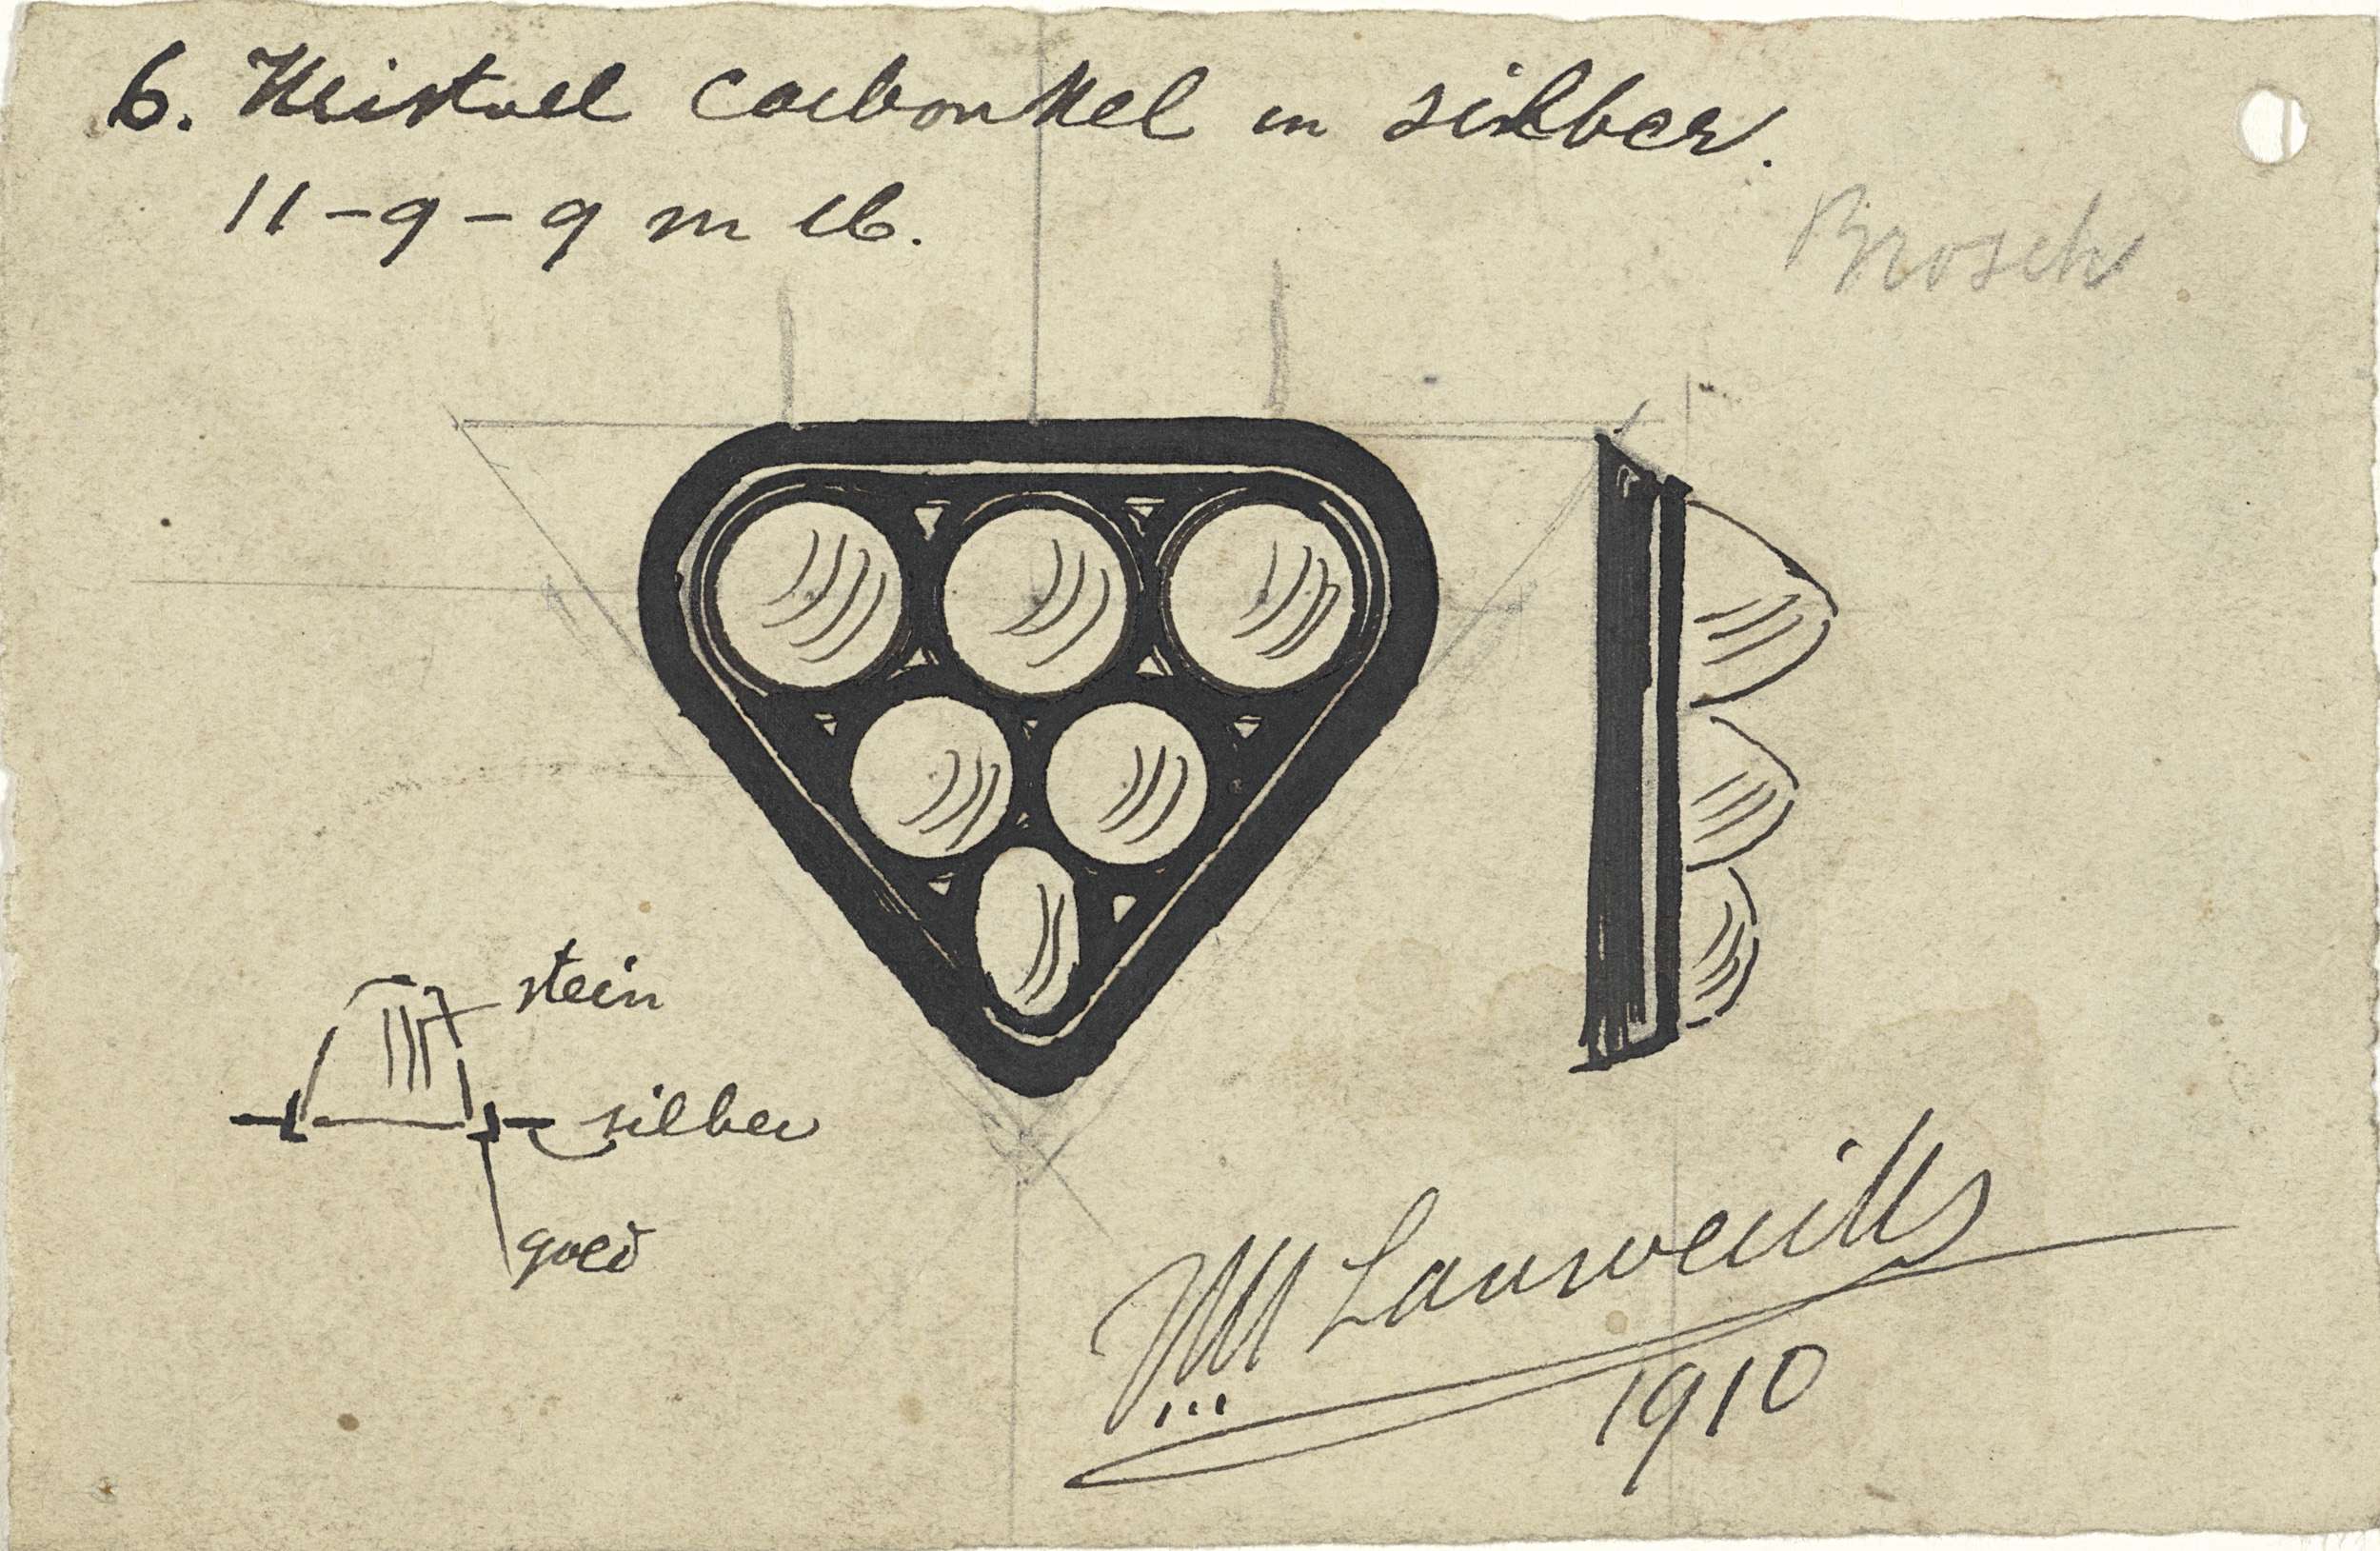 6. Kristall carbonkel in silber.
11-9-9 m
Brosch
stein
silber
goud
M Lauweriks
1910